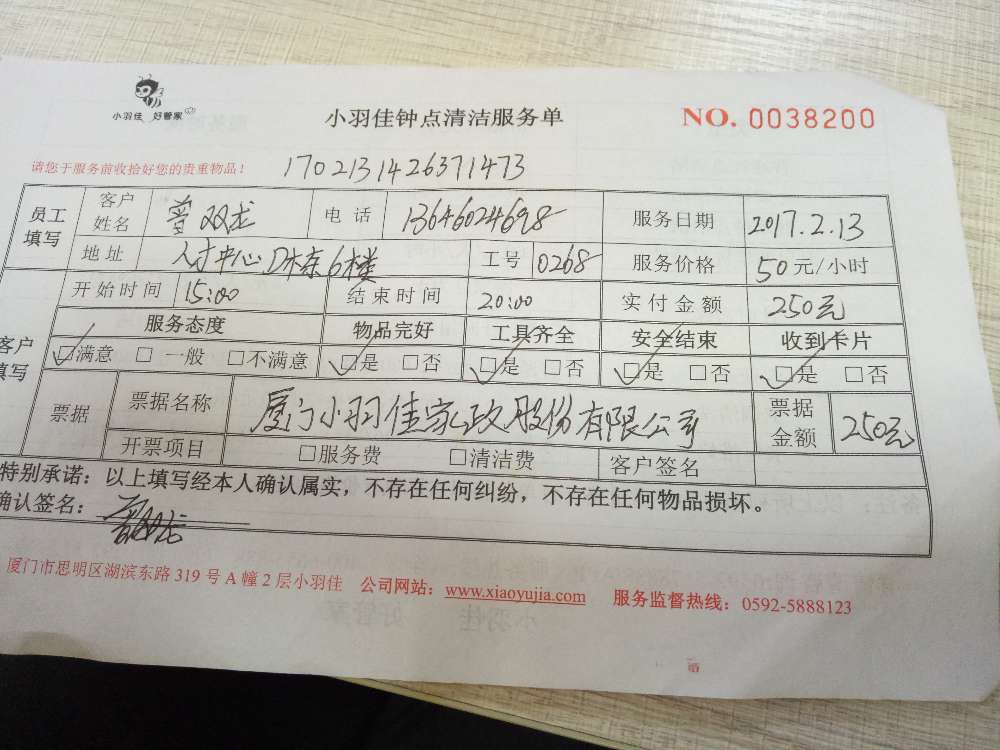 小羽佳 好管家
小羽佳钟点清洁服务单
NO. 0038200
请您于服务前收拾好您的贵重物品!
170213142637​1473
员工填写 客户姓名 曾双龙 电话 13646024698 服务日期 2017.2.13
地址 人才中心D栋6楼 工号 0268 服务价格 50元/小时
开始时间 15:00 结束时间 20:00 实付金额 250元
客户填写 服务态度 物品完好 工具齐全 安全结束 收到卡片
☑满意 □一般 □不满意 ☑是 □否 ☑是 □否 ☑是 □否 ☑是 □否
票据 票据名称 厦门小羽佳家政股份有限公司 票据金额 250元
开票项目 □服务费 □清洁费 客户签名
特别承诺:以上填写经本人确认属实,不存在任何纠纷,不存在任何物品损坏。
确认签名: 曾双龙
厦门市思明区湖滨东路319号A幢2层小羽佳 公司网站:www.xiaoyujia.com 服务监督热线:0592-5888123